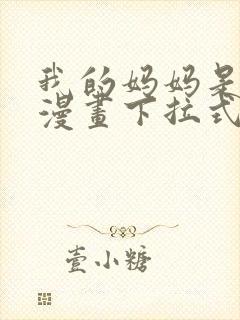 我的妈妈是
漫畫下拉式
壹小糖